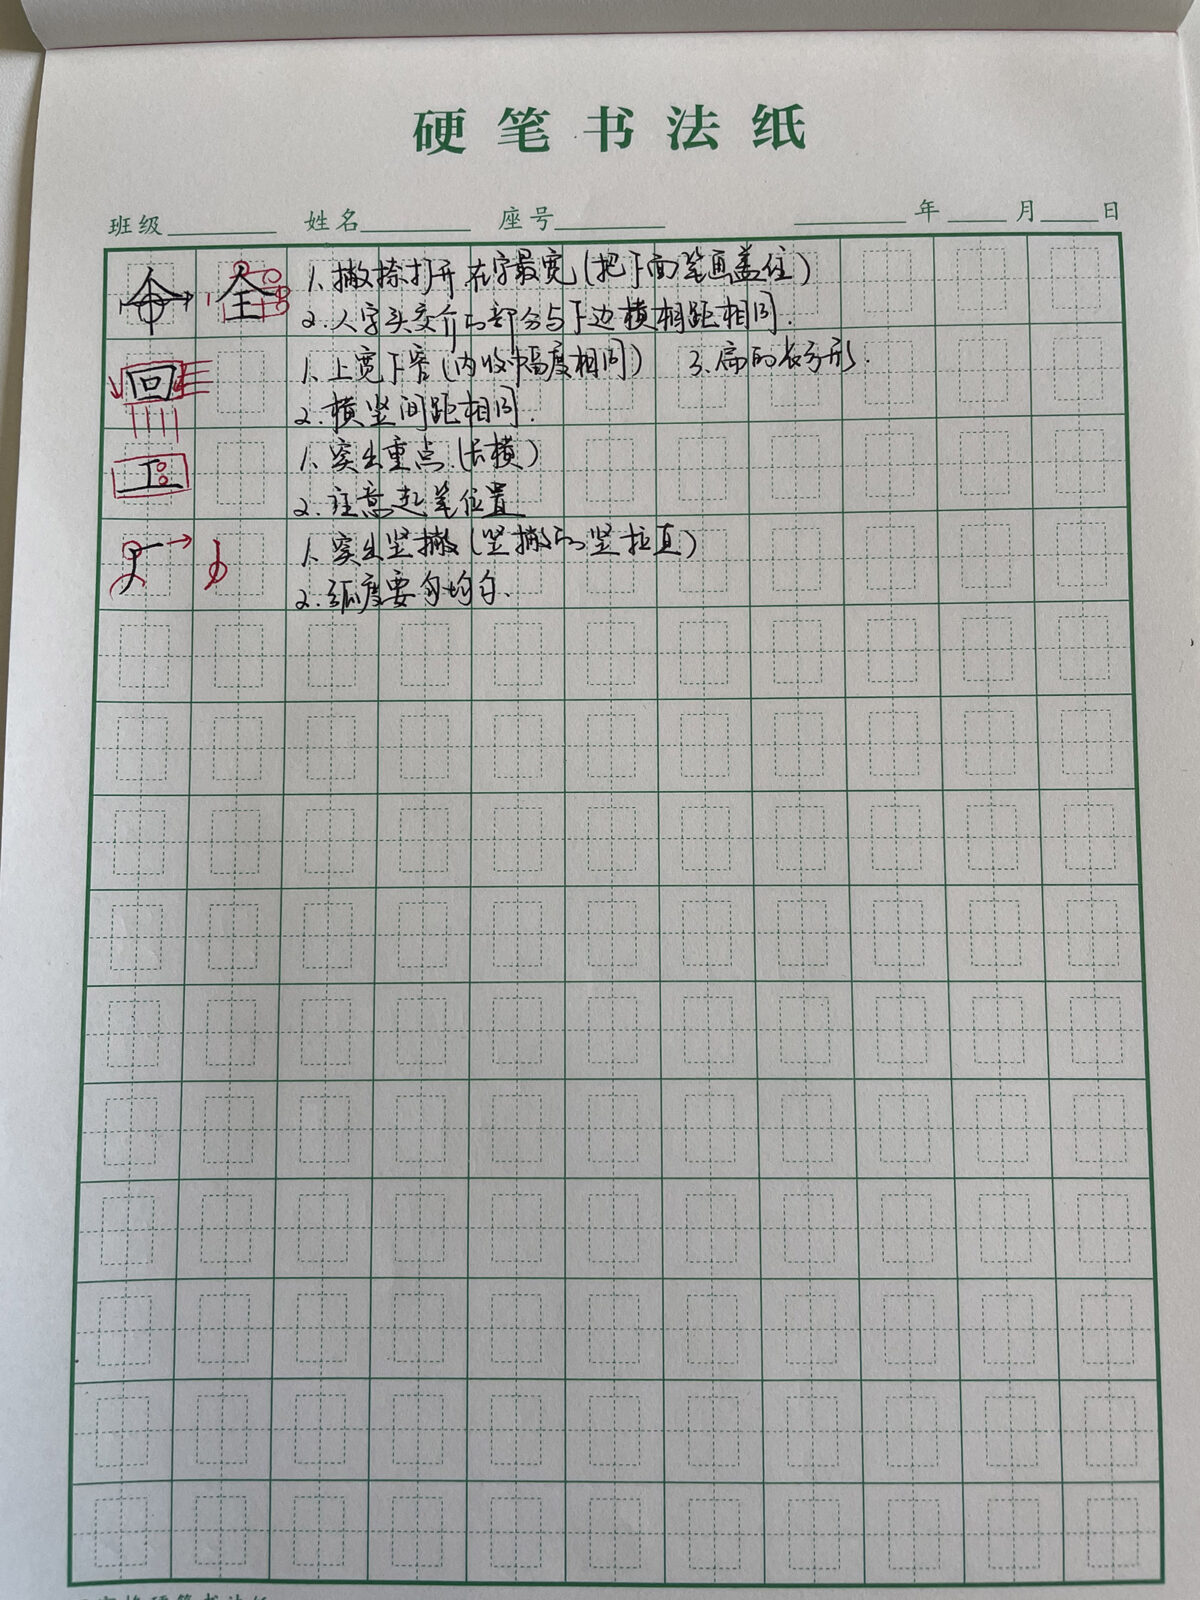 硬笔书法纸
班级 姓名 座号 年 月 日
全 1. 撇捺打开在字最宽(把下面笔画盖住)
2. 人字头交介的部分与下边横相距相同.
回 1. 上宽下窄(内收幅度相同) 3. 扁的长方形.
2. 横竖间距相同.
工 1. 突出重点(长横)
2. 注意起笔位置
1. 突出竖撇(竖撇的竖拉直)
2. 弧度要匀均匀.